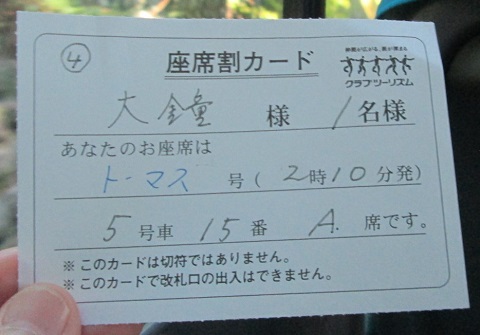 ④
座席割カード
仲間が広がる、旅が深まる
クラブツーリズム
大鐘 様 1名様
あなたのお座席は
トーマス 号(2時10分発)
5号車 15番 A.席です。
※このカードは切符ではありません。
※このカードで改札口の出入はできません。